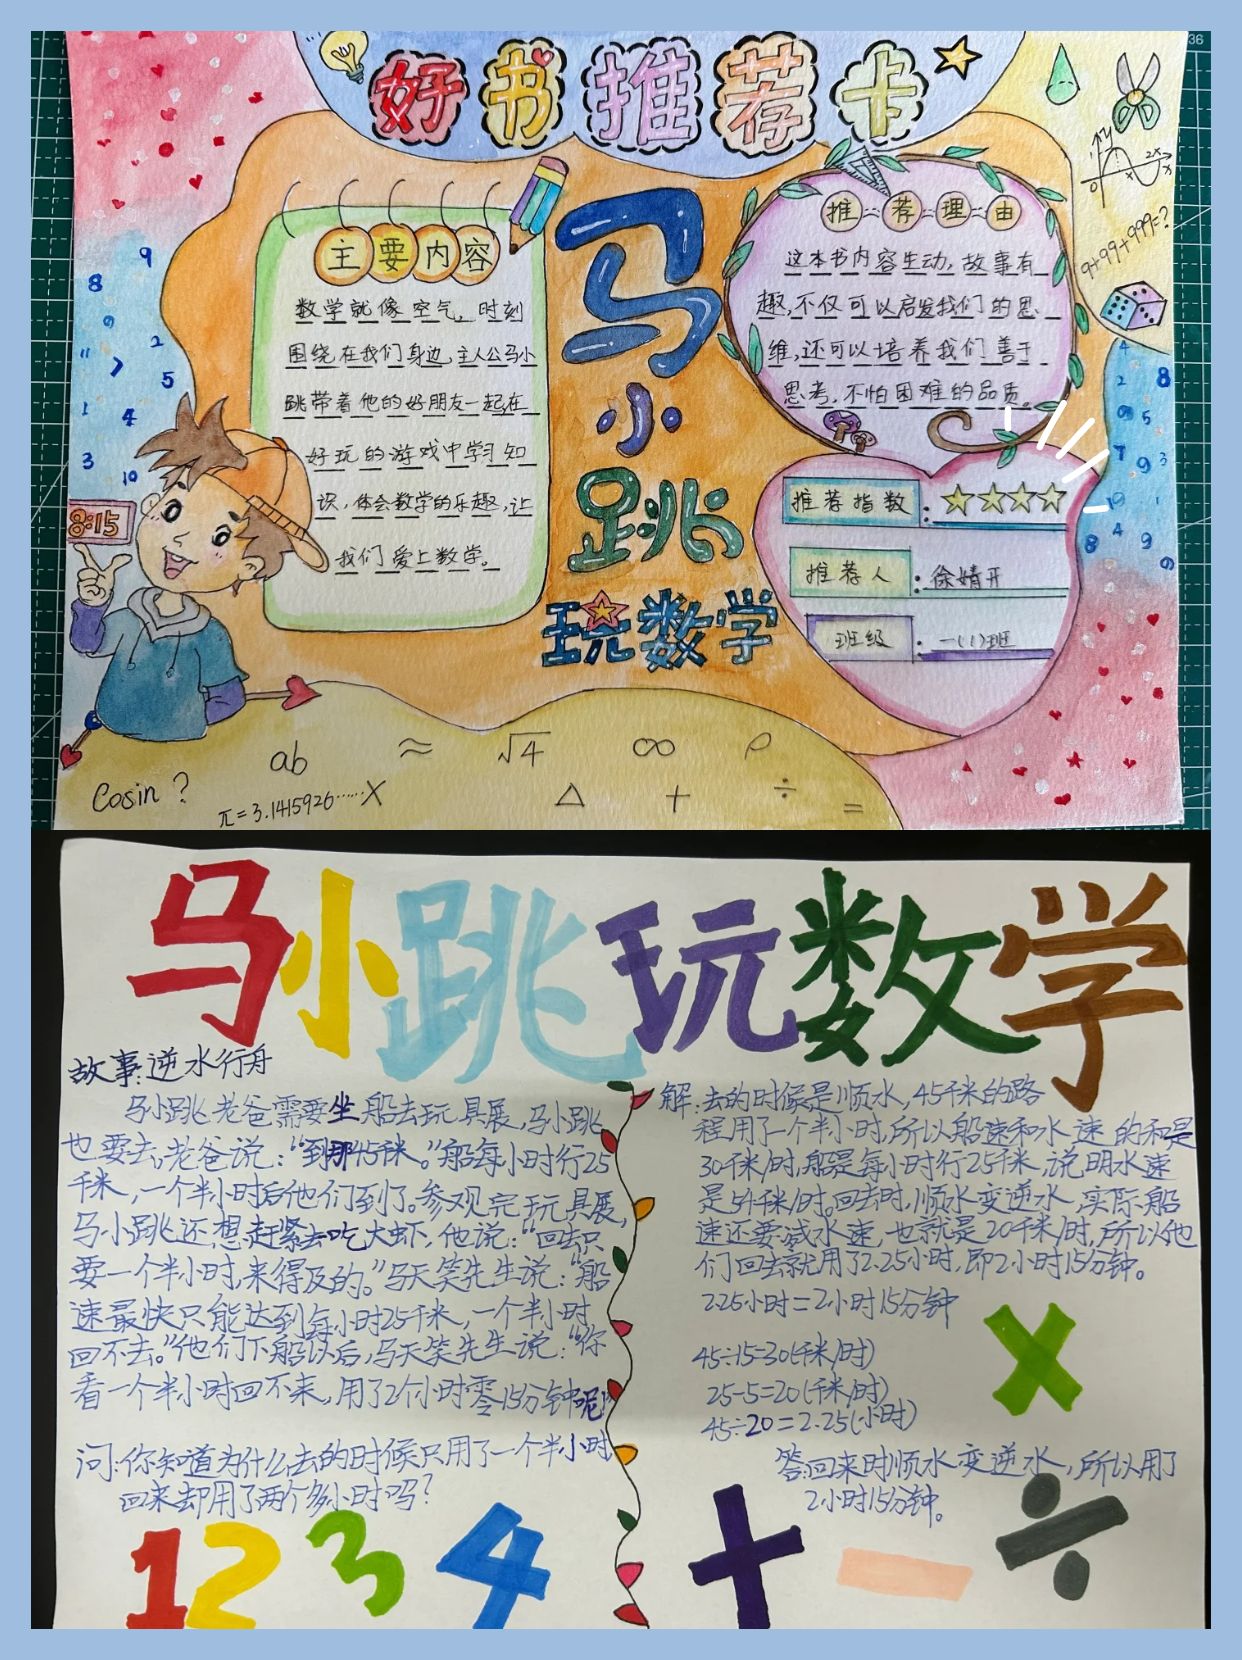 好书推荐卡
主要内容
数学就像空气，时刻
围绕在我们身边，主人公马小
跳带着他的好朋友一起在
好玩的游戏中学习知
识，体会数学的乐趣，让
我们爱上数学。
马小跳
玩数学
推荐理由
这本书内容生动，故事有
趣，不仅可以启发我们的思
维，还可以培养我们善于
思考，不怕困难的品质。
推荐指数：
推荐人：徐婧开
班级：一(1)班
9+99+999=?
8:15
ab ≈ √4 ∞ ρ
Cosin ?
π=3.1415926……X
△ + ÷ =
马小跳玩数学
故事:逆水行舟
马小跳老爸需要坐船去玩具展,马小跳
也要去,老爸说：“到那45千米。”船每小时行25
千米,一个半小时后他们到了。参观完玩具展,
马小跳还想赶紧去吃大虾,他说:“回去只
要一个半小时,来得及的。”马天笑先生说:“船
速最快只能达到每小时25千米,一个半小时
回不去。”他们下船以后,马天笑先生说:“你
看一个半小时回不来,用了2个小时零15分钟呢!”
问:你知道为什么去的时候只用了一个半小时
回来却用了两个多小时吗?
解:去的时候是顺水,45千米的路
程用了一个半小时,所以船速和水速的和是
30千米/时,船是每小时行25千米,说明水速
是5千米/时。回去时,顺水变逆水,实际船
速还要减水速,也就是20千米/时,所以他
们回去就用了2.25小时,即2小时15分钟。
2.25小时=2小时15分钟
45÷15=30(千米/时)
25-5=20(千米/时)
45÷20=2.25(小时)
答:回来时顺水变逆水,所以用了
2小时15分钟。
1 2 3 4 + − × ÷